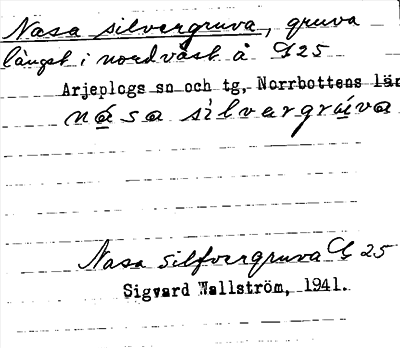 Nasa silvergruva, gruva
längst i nordväst å G25
Arjeplogs sn och tg, Norrbottens län
nása sìlvargrúva
Nasa silfvergruva G 25
Sigvard Wallström, 1941.